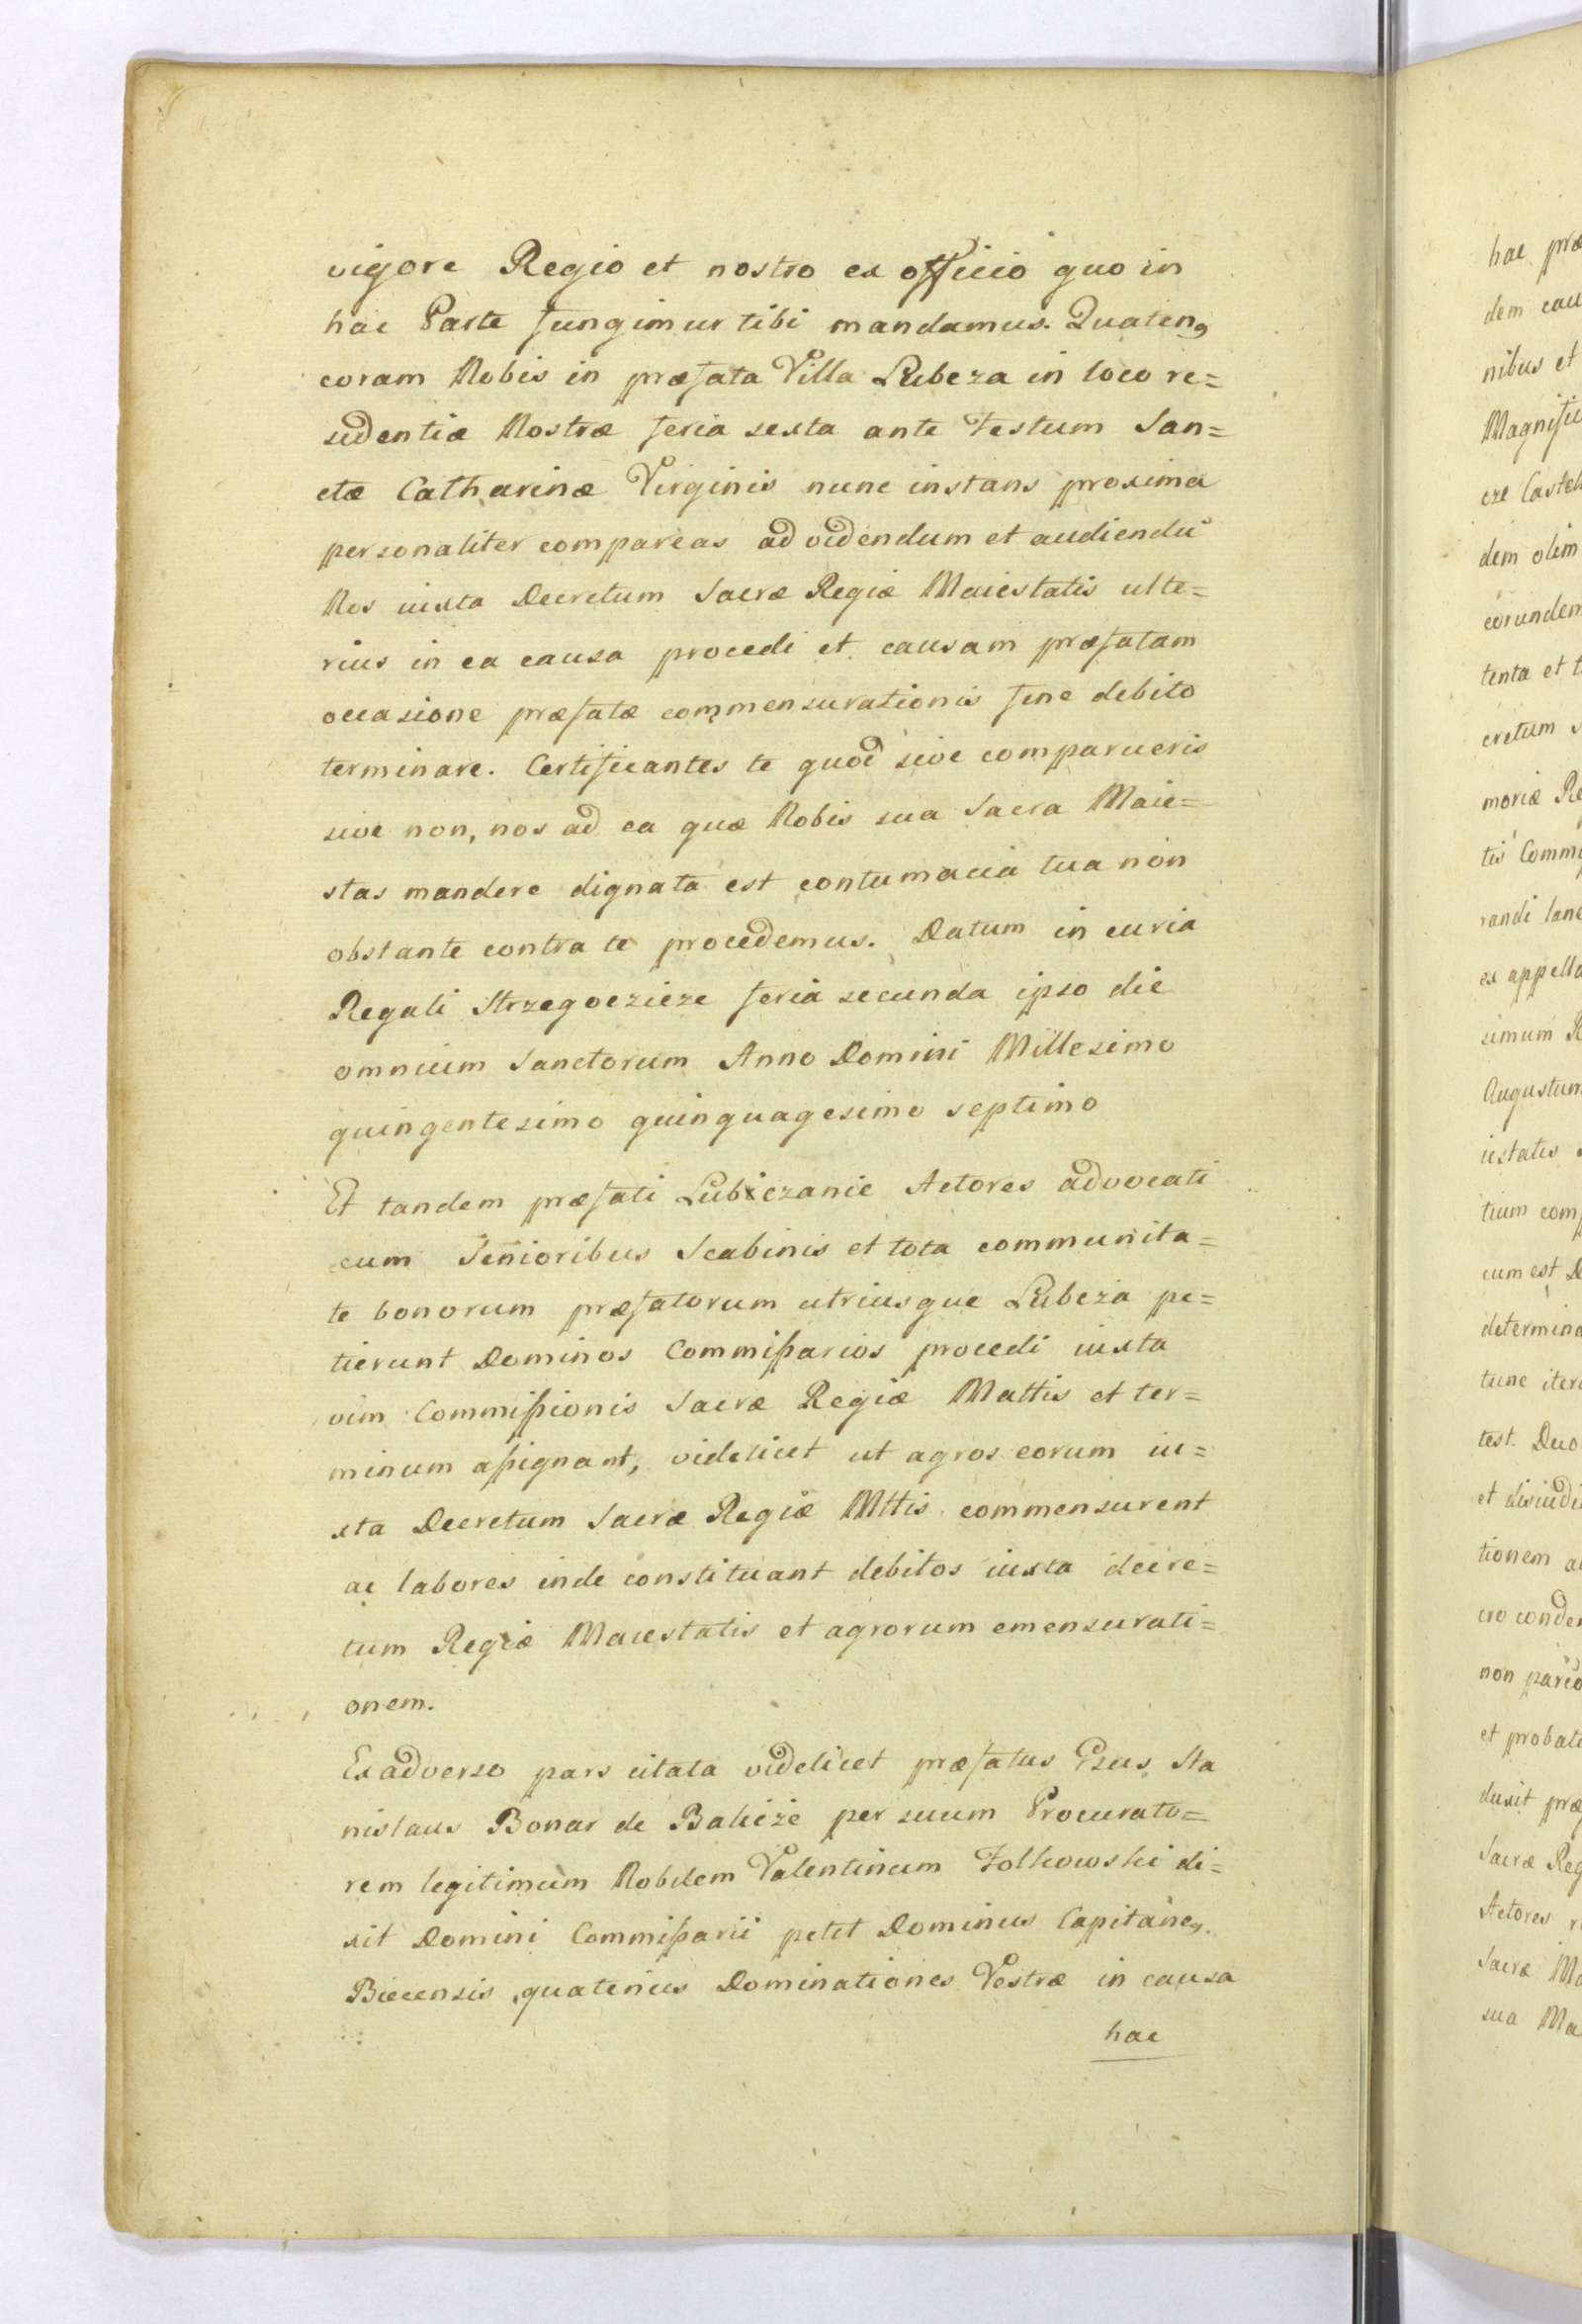 vigore Regio et nostro ex officio quo in
hac Parte fungimur tibi mandamus. Quaten9
coram Nobis in præfata Villa Lubcza in loco re=
sidentiæ Nostræ feria sexta ante Festum San=
ctæ Catharinæ Virginis nunc instans proxima
personaliter compareas ad videndum et audiendū
Nos iuxta Decretum Sacræ Regiæ Maiestatis ulte=
rius in ea causa procedi et causam præfatam
occasione præfatæ commensurationis fine debito
terminare. Certificantes te quod sive comparueris
sive non, nos ad ea quæ Nobis sua Sacra Maie=
stas mandere dignata est contumacia tua non
obstante contra te procedemus. Datum in curia
Regali Strzegoczicze feria secunda ipso die
omnium Sanctorum Anno Domini Millesimo
quingentesimo quinquagesimo septimo
Et tandem præfati Lubiczanie Actores advocati
cum Senioribus Scabinis et tota communita=
te bonorum præfatorum utriusque Lubcza pe=
tierunt Dominos Commißarios procedi iuxta
vim Commißionis Sacræ Regiæ Mattis et ter=
minum aßignant, videlicet ut agros eorum iu=
xta Decretum Sacræ Regiæ Mttis commensurent
ac labores inde constituant debitos iuxta decre=
tum Regiæ Maiestatis et agrorum emensurati=
onem.
Ex adverso pars citata videlicet præfatus Gsus Sta
nislaus Bonar de Balicze per suum Procurato=
rem legitimum Nobilem Valentinum Folkowski di=
xit Domini Commißarii petit Dominus Capitane9
Biecensis quatenus Dominationes Vestræ in causa
hac
hac præ
dem cau
nibus et
Magnific
cze Castel
dem olim
eorundem
tenta et t
cretum s
moriæ Re
tis Commi
randi lane
ex appella
simum R
Augustum
iestatis
tium comp
cum est D
determina
tunc iter
test. Duo
et disiudi
tionem a
cro conden
non pario
et probati
duxit præ
Sacræ Reg
Actores r
Sacræ Ma
sua Ma